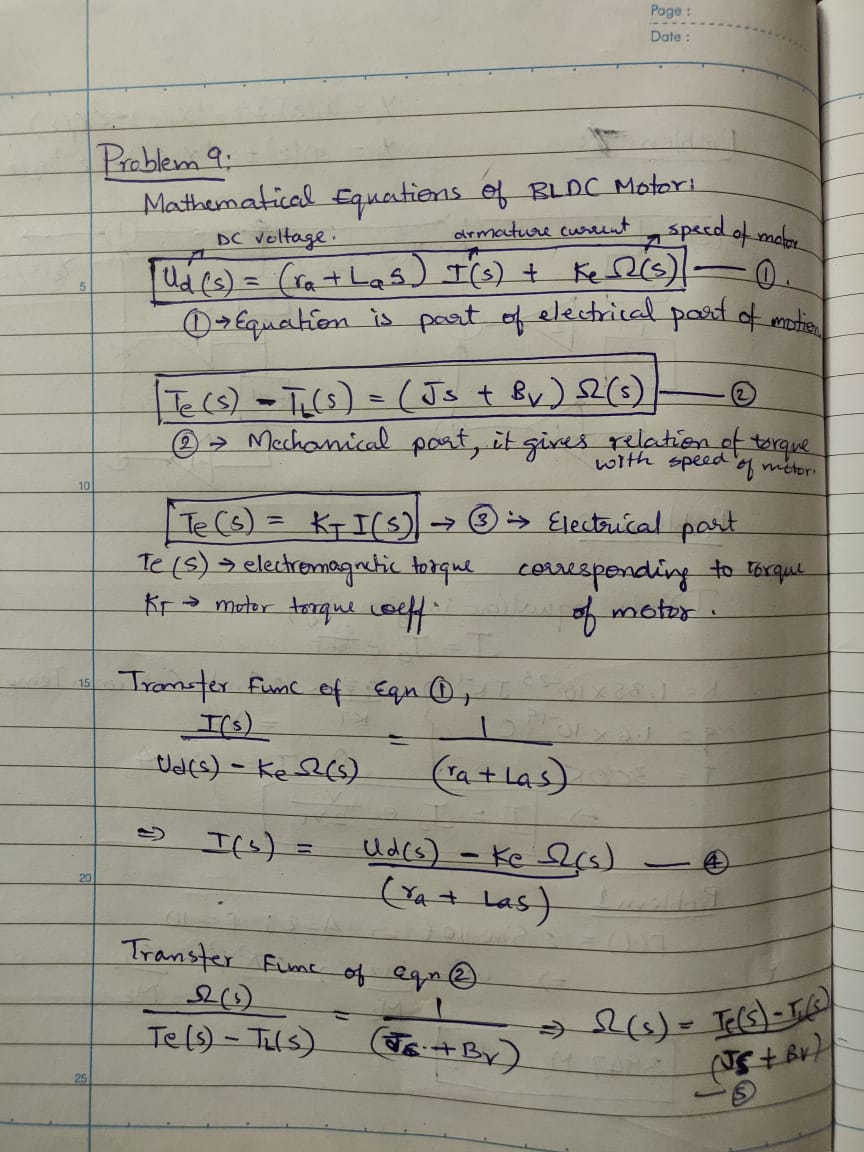 Page :
Date :
Problem 9:
Mathematical Equations of BLDC Motor:
DC voltage. armature current speed of motor
Ud(s) = (ra + LaS) I(s) + Ke Ω(s) — ①.
① → Equation is part of electrical part of motion
5
Te(s) - TL(s) = (Js + Bv) Ω(s) — ②
② → Mechanical part, it gives relation of torque
with speed of motor.
10
Te(s) = KT I(s) → ③ → Electrical part
Te(s) → electromagnetic torque corresponding to torque
KT → motor torque coeff. of motor.
15
Transfer Func of Eqn ①,
I(s) / Ud(s) - Ke Ω(s) = 1 / (ra + Las)
⇒ I(s) = Ud(s) - Ke Ω(s) / (ra + Las) — ④
20
Transfer Func of eqn ②
Ω(s) / Te(s) - TL(s) = 1 / (Js + Bv) ⇒ Ω(s) = Te(s) - TL(s) / (Js + Bv)
— ⑤
25